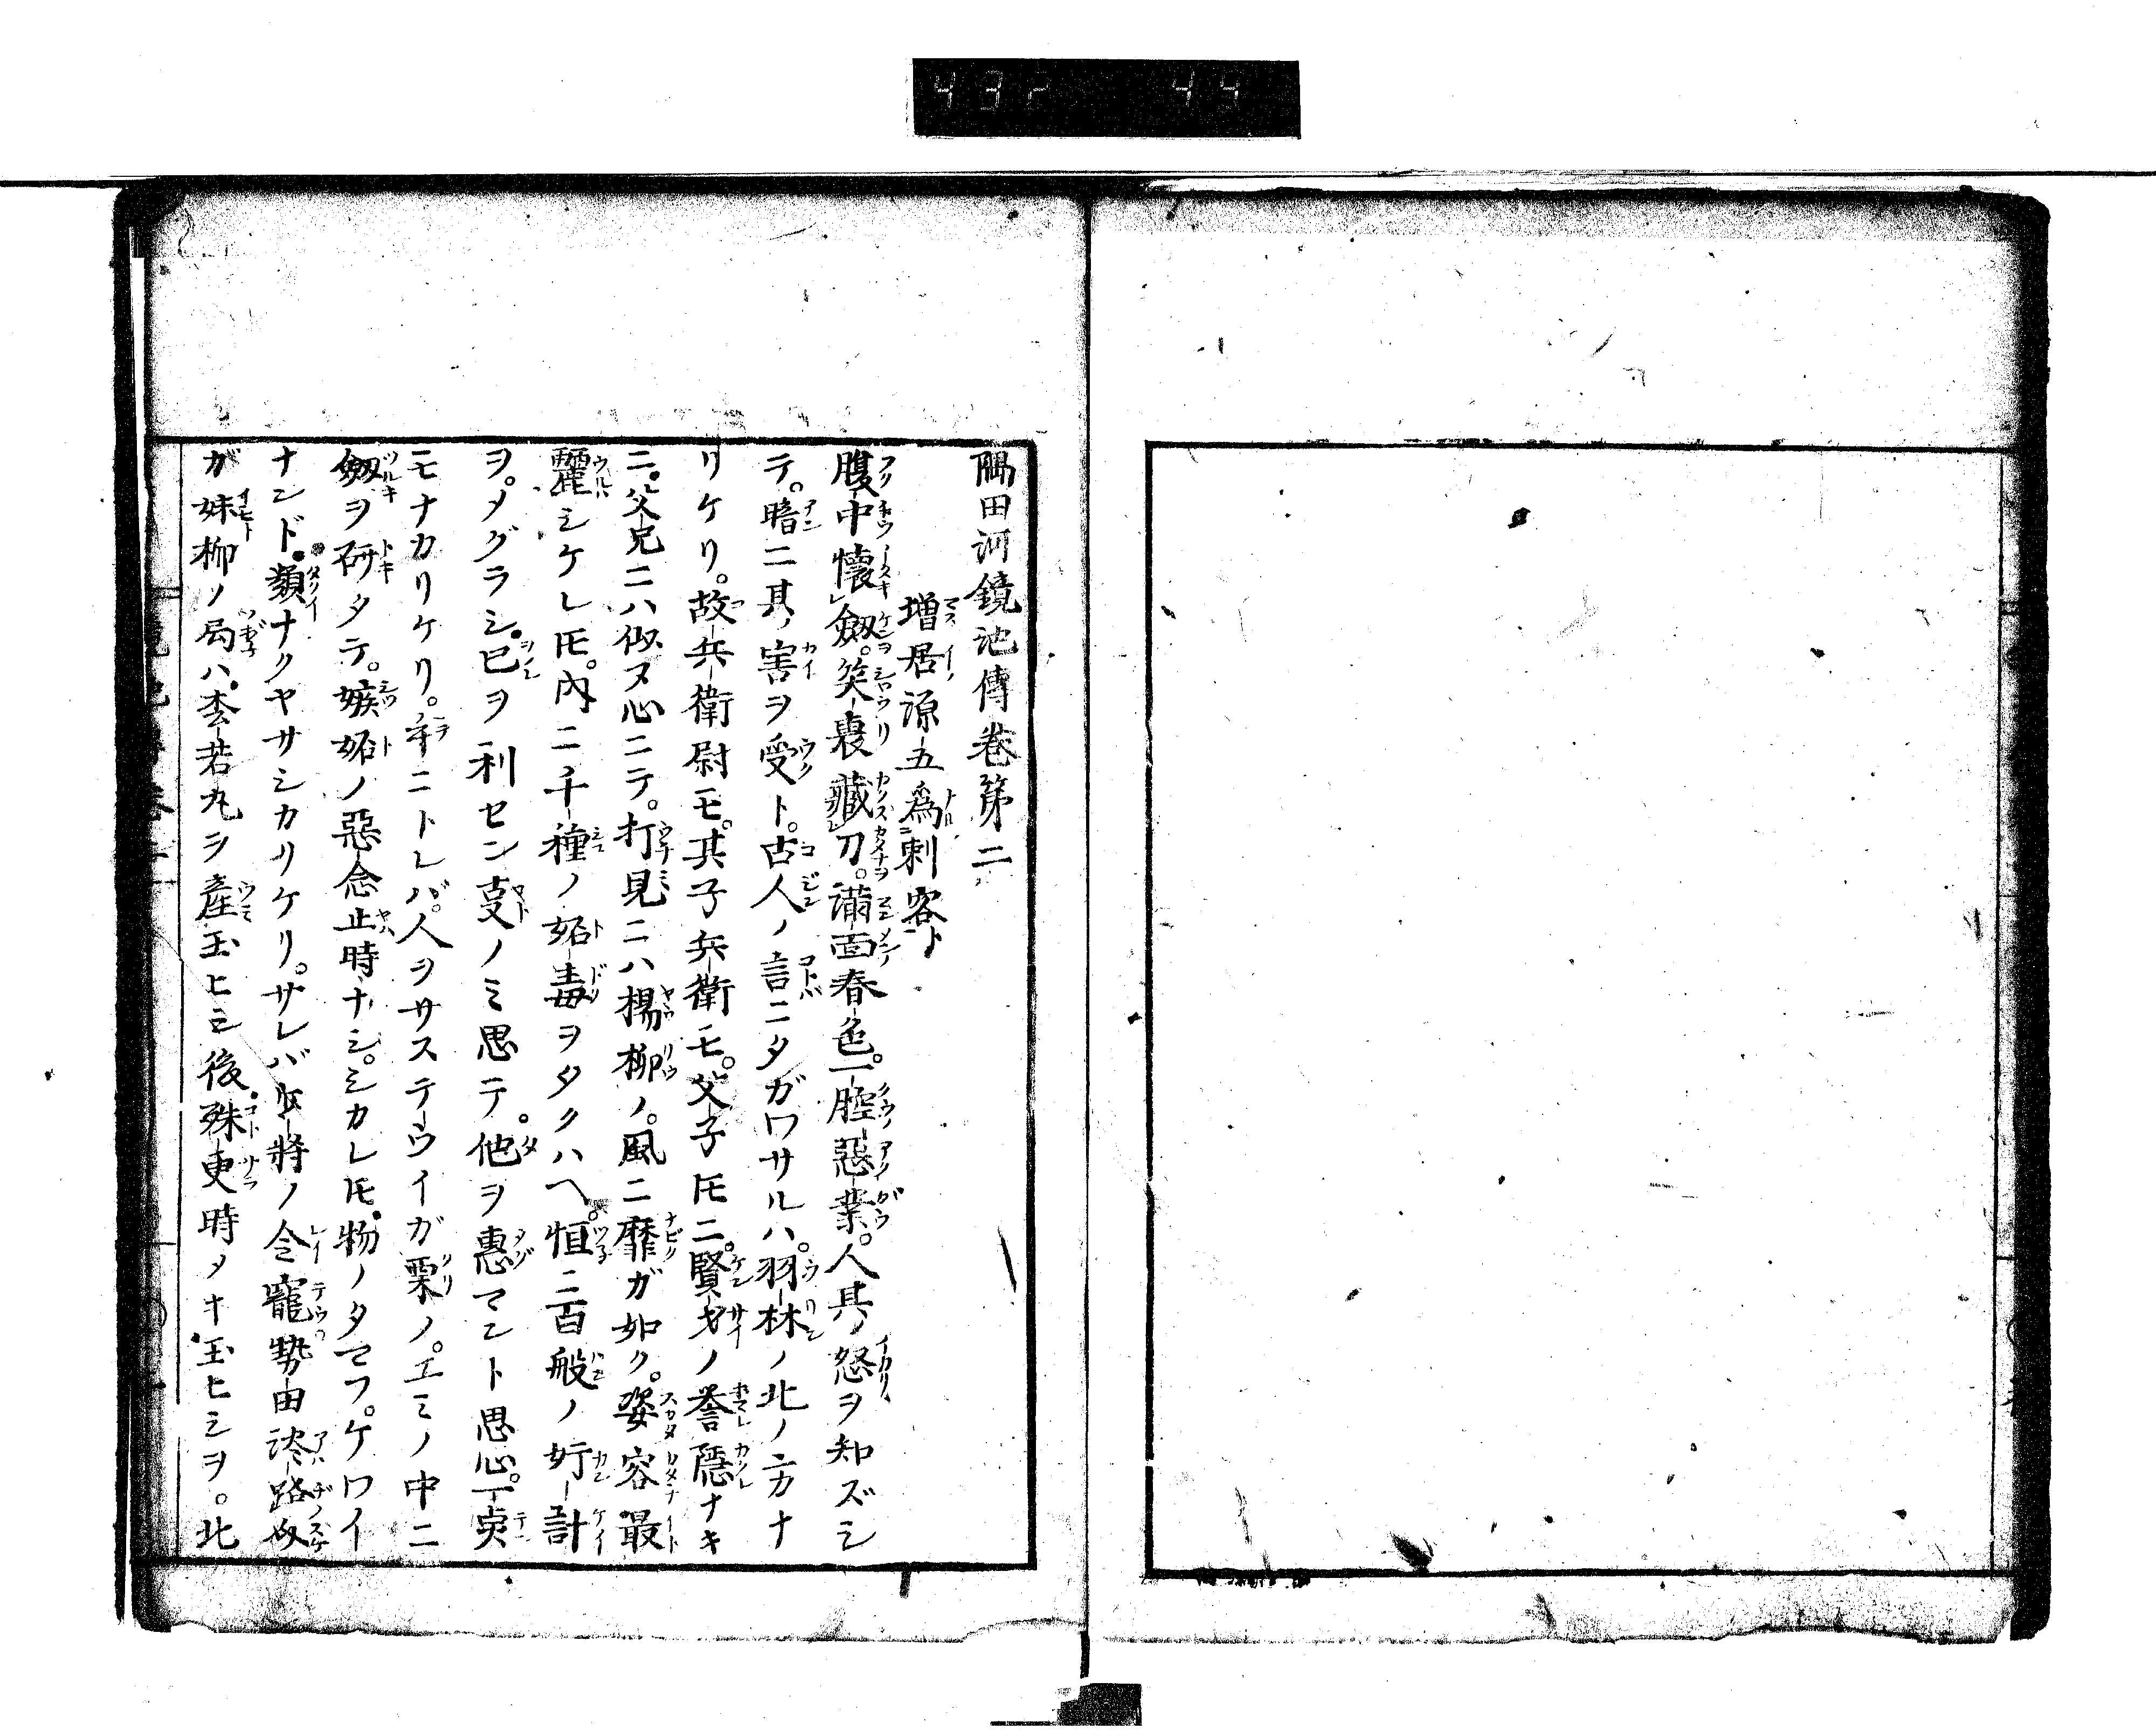 432 44
隅田河鏡池傳卷第二
増居源五為刺客
腹中懷劔。笑裏藏刀。滿面春色。一腔惡業。人其怒ヲ知ズシ
テ。暗ニ其害ヲ受ト。古人ノ言ニタガワサルハ。羽林ノ北ノ方ナ
リケリ。故兵衛尉モ。其子兵衛モ。父子𪜈ニ。賢才ノ誉隱ナキ
ニ。父兄ニハ似ヌ心ニテ。打見ニハ楊柳ノ。風ニ靡ガ如ク。姿容最
麗シケレ𪜈。内ニ千種ノ妬毒ヲタクハヘ。恒ニ百般ノ奸計
ヲ。メグラシ。己ヲ利セン叓ノミ思テ。他ヲ惠マント思心。一奌
モナカリケリ。手ニトレバ。人ヲサステウイガ栗ノ。エミノ中ニ
劔ヲ研タテ。嫉妬ノ惡念止時ナシ。シカレ𪜈。物ノタマフ。ケワイ
ナンド。類ナクヤサシカリケリ。サレバ少將ノ令寵勢由淡路奴
ガ妹柳ノ局ハ。松若丸ヲ産玉ヒシ後。殊更時メキ玉ヒシヲ。北